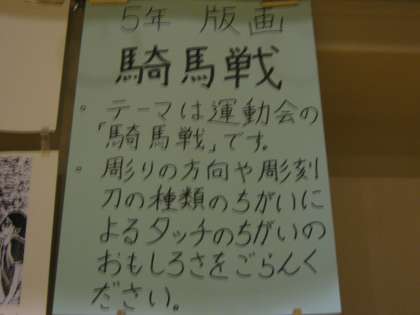 5年 版画
騎馬戦
。テーマは運動会の
「騎馬戦」です。
。彫りの方向や彫刻
刀の種類のちがいに
よるタッチのちがいの
おもしろさをごらんく
ださい。